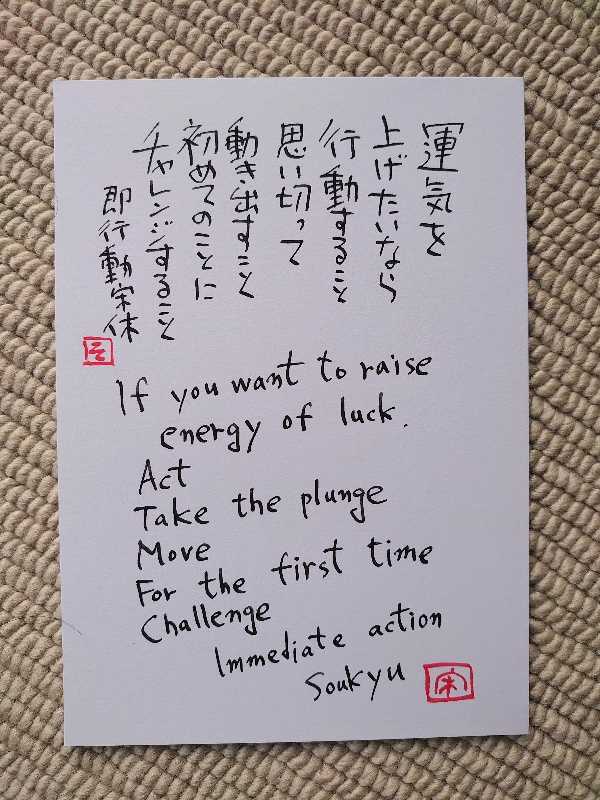 運気を
上げたいなら
行動すること
思い切って
動き出すこと
初めてのことに
チャレンジすること
即行動宋休
そ
If you want to raise
energy of luck.
Act
Take the plunge
Move
For the first time
Challenge
Immediate action
Soukyu
宋